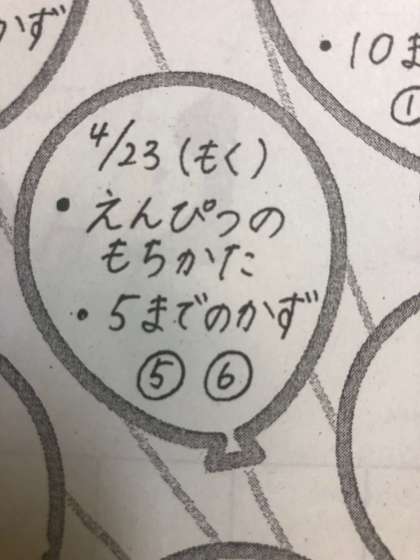 かず
・10ま
①
4/23(もく)
・えんぴつの
もちかた
・5までのかず
⑤ ⑥